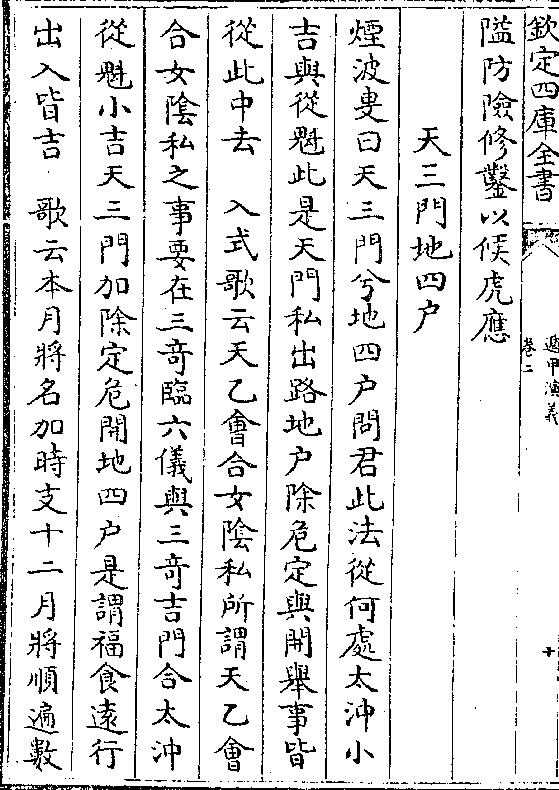 欽定四庫全書
遁甲演義
卷二
十
隘防險修鑿以候虎應
天三門地四户
煙波叟曰天三門兮地四户問君此法從何處太沖小
吉與從魁此是天門私出路地户除危定與開舉事皆
從此中去　入式歌云天乙會合女隂私所謂天乙會
合女隂私之事要在三竒臨六儀與三竒吉門合太沖
從魁小吉天三門加除定危開地四户是謂福食遠行
出入皆吉　歌云本月將名加時支十二月將順遍數